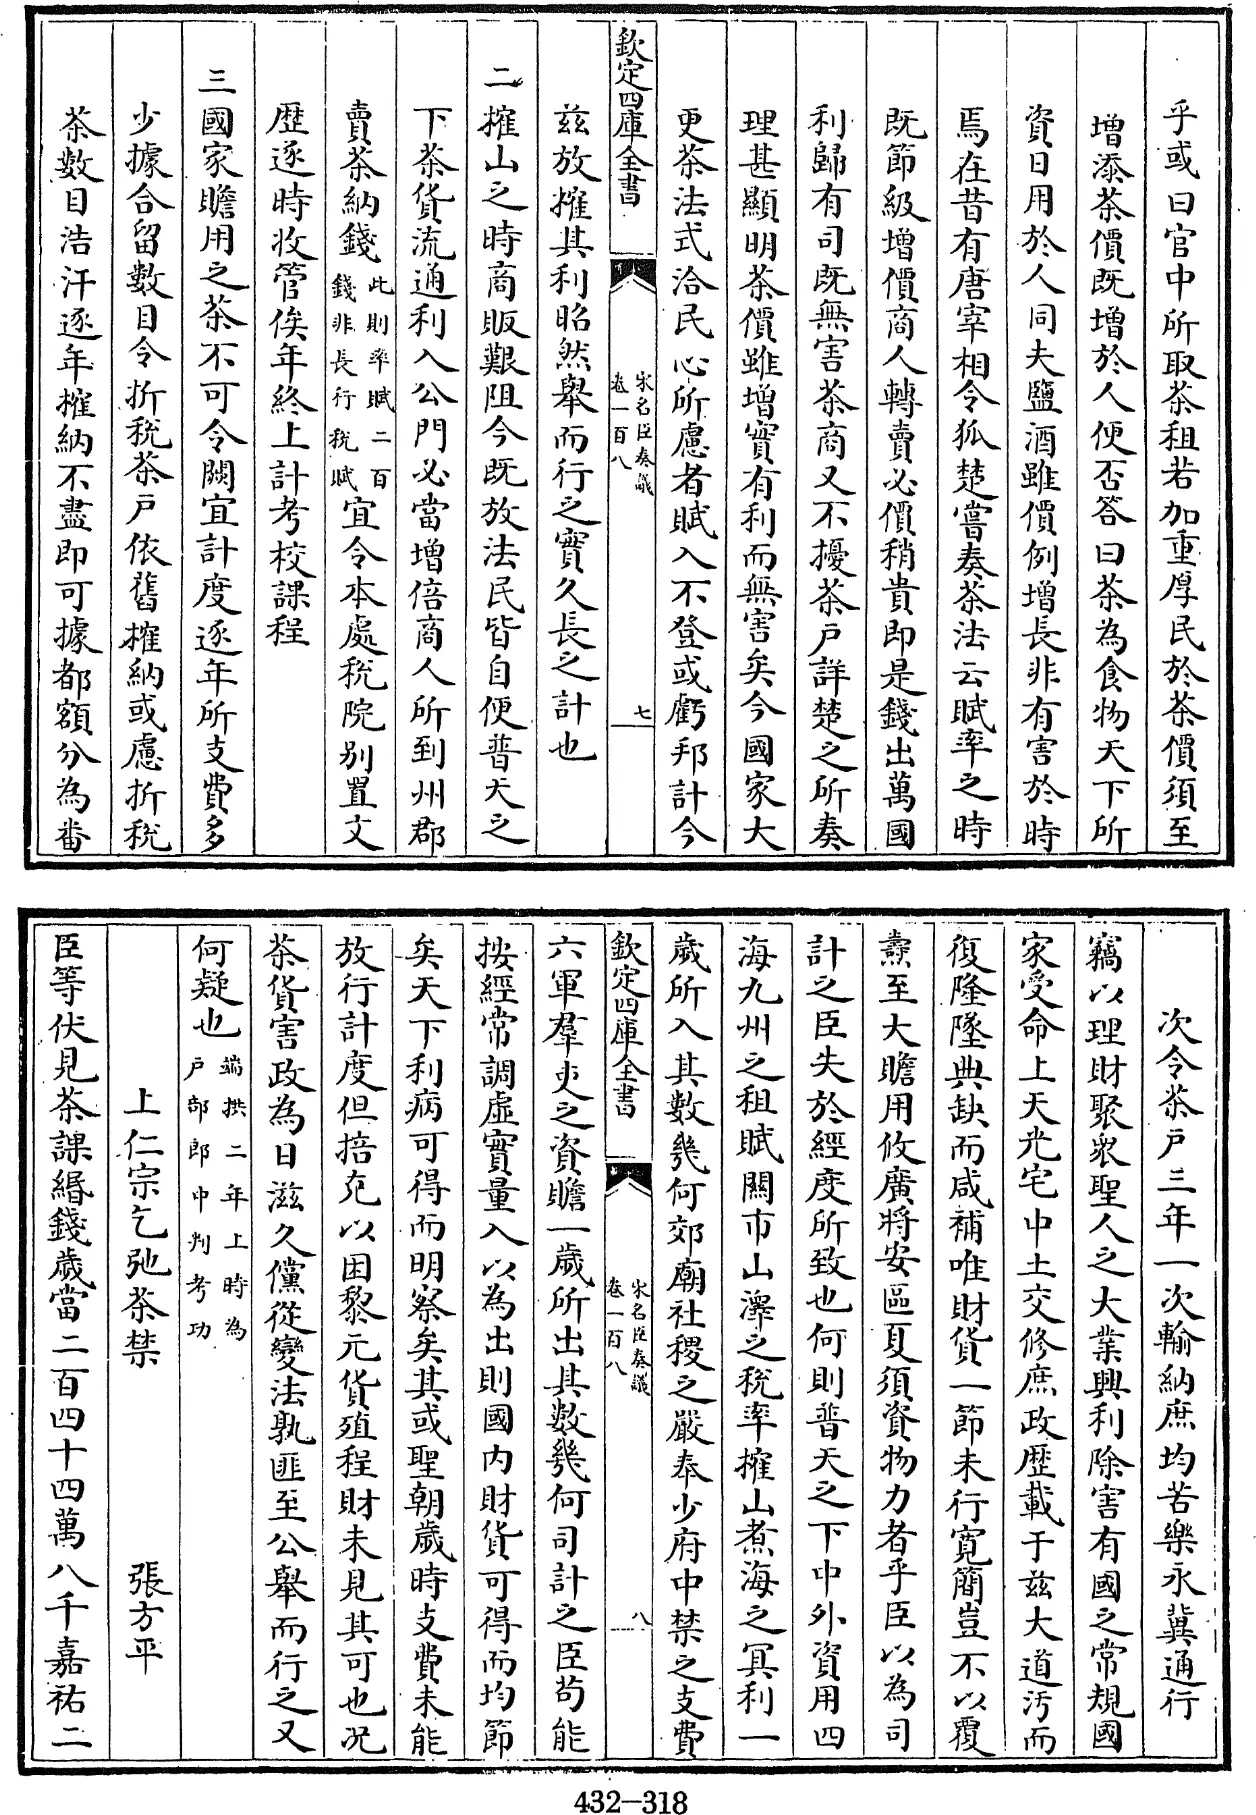 乎或曰官中所取茶租若加重厚民於茶價須至
增添茶價既增於人便否答曰茶為食物天下所
資日用於人同夫鹽酒雖價例增長非有害於時
焉在昔有唐宰相令狐楚嘗奏茶法云賦率之時
既節級增價商人轉賣必價稍貴即是錢出萬國
利歸有司既無害茶商又不擾茶戶詳楚之所奏
理甚顯明茶價雖增實有利而無害矣今國家大
更茶法式洽民心所慮者賦入不登或虧邦計今
欽定四庫全書
宋名臣奏議
卷一百八
七
茲放搉其利昭然舉而行之實久長之計也
二搉山之時商販艱阻今既放法民皆自便普天之
下茶貨流通利入公門必當增倍商人所到州郡
賣茶納錢此則率賦二百錢非長行稅賦宜令本處稅院別置文
歴逐時收管俟年終上計考校課程
三國家贍用之茶不可令闕宜計度逐年所支費多
少據合留數目令折稅茶戶依舊搉納或慮折稅
茶數目浩汗逐年搉納不盡即可據都額分為番
次令茶戶三年一次輸納庶均苦樂永冀通行
竊以理財聚衆聖人之大業興利除害有國之常規國
家受命上天光宅中土交修庶政歴載于茲大道汚而
復隆墜典缺而咸補唯財貨一節未行寛簡豈不以覆
燾至大贍用攸廣將安區夏須資物力者乎臣以為司
計之臣失於經度所致也何則普天之下中外資用四
海九州之租賦關市山澤之稅率搉山煮海之冥利一
歲所入其數幾何郊廟社稷之嚴奉少府中禁之支費
欽定四庫全書
宋名臣奏議
卷一百八
八
六軍羣吏之資贍一歲所出其數幾何司計之臣苟能
按經常調虛實量入以為出則國內財貨可得而均節
矣天下利病可得而明察矣其或聖朝歲時支費未能
放行計度但掊克以困黎元貨殖程財未見其可也況
茶貨害政為日滋久儻從變法孰匪至公舉而行之又
何疑也端拱二年上時為戶部郎中判考功
上仁宗乞弛茶禁 張方平
臣等伏見茶課緡錢歲當二百四十四萬八千嘉祐二
432-318